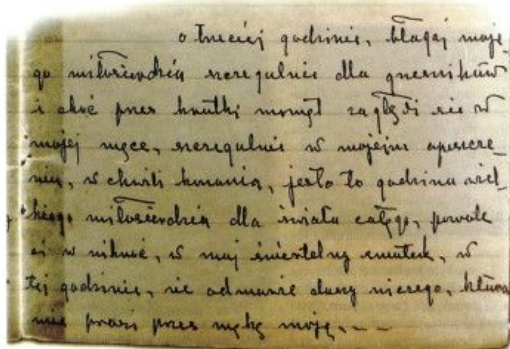 o trzeciej godzinie, błagaj moje-
go miłosierdzia szczególnie dla grzeszników
i choć przez krutki moment zagłębiaj się w
mojej męce, szczególnie w mojem opuszcze-
niu, w chwili konania, jest to godzina wiel-
kiego miłosierdzia dla świata całego, pozwolę
ci wniknąć, w mój śmiertelny smutek, w
tej godzinie, nie odmówię duszy niczego, która
mnie prosi przez mękę moją. — —